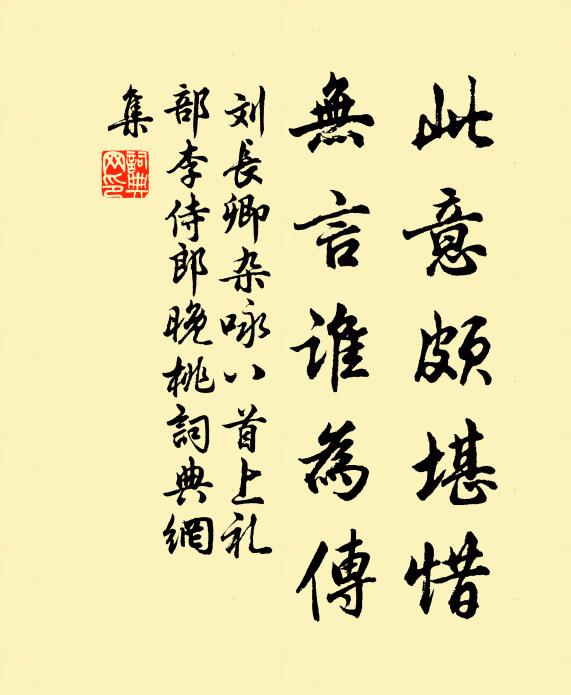 此意頗堪惜
無言誰為傳
刘長卿杂咏八首上礼
部李侍郎晚桃詞典網
集
詞典網印